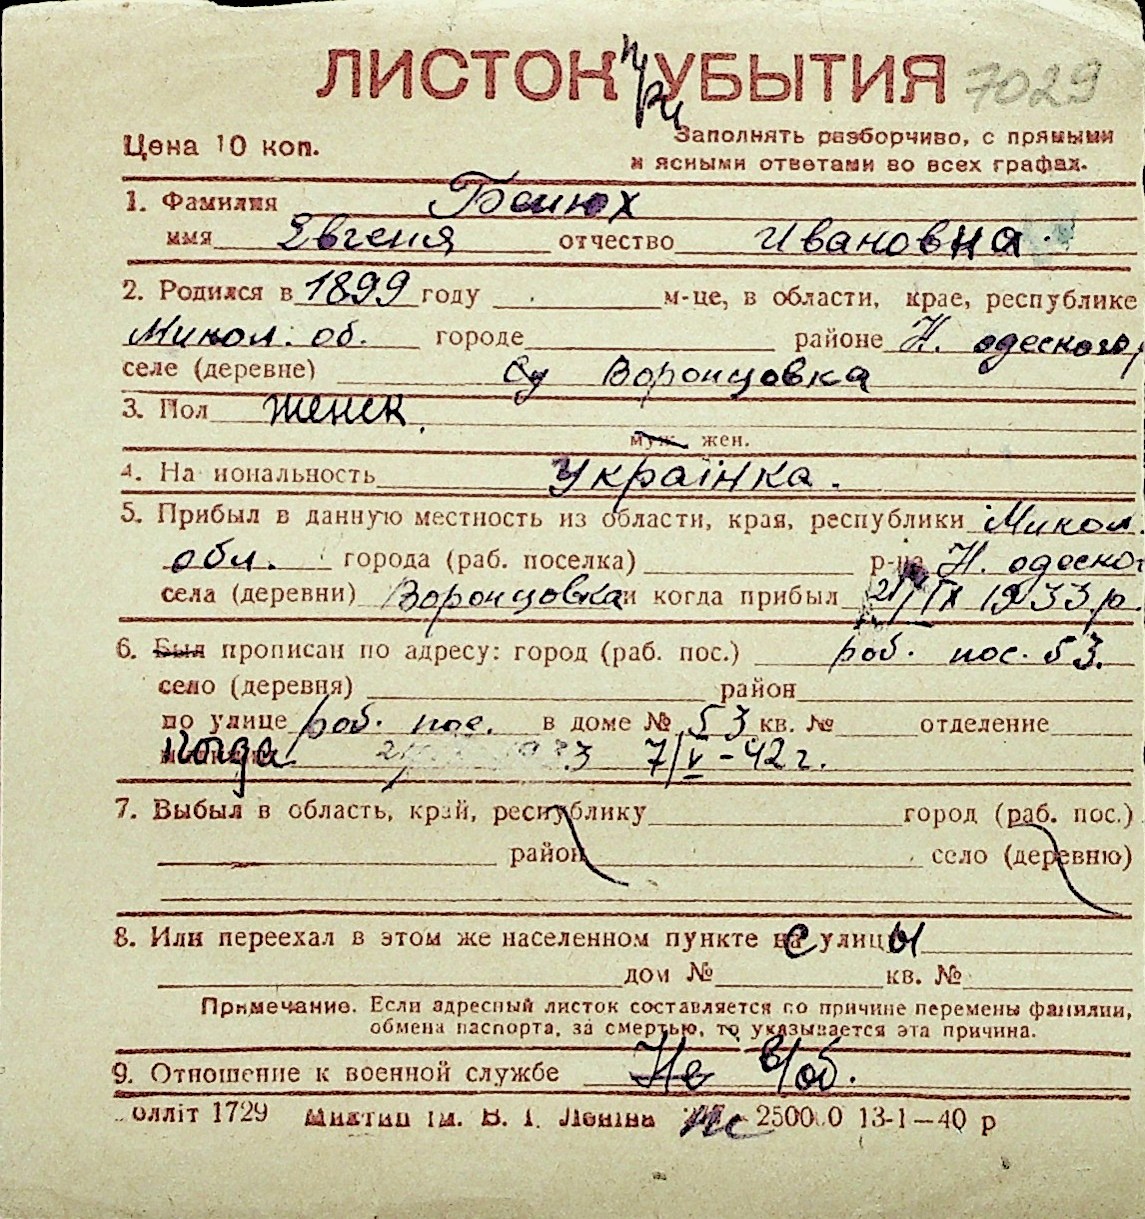 ЛИСТОК при УБЫТИЯ 7029
Цена 10 коп.
Заполнять разборчиво, с прямыми
и ясными ответами во всех графах.
1. Фамилия
имя Евгения отчество Ивановна
2. Родился в 1899 году м-це, в области, крае, республике
Микол. об. городе районе Н. одеского
селе (деревне) Воронцовка
3. Пол женск.
муж. жен.
4. На иональность Українка.
5. Прибыл в данную местность из области, края, республики Микол.
обл. города (раб. поселка) р-на Н. одеског
села (деревни) Воронцовка и когда прибыл 21/IX 1933 р.
6. Был прописан по адресу: город (раб. пос.) роб. пос. 53.
село (деревня) район
по улице роб. пос. в доме № 53 кв. № отделение
когда 7/V-42 г.
7. Выбыл в область, край, республику город (раб. пос.)
район село (деревню)
8. Или переехал в этом же населенном пункте с улицы
дом № кв. №
Примечание. Если адресный листок составляется по причине перемены фамилии,
обмена паспорта, за смертью, то указывается эта причина.
9. Отношение к военной службе Не в/об.
олліт 1729 ім. В. І. Леніна 13-1—40 р